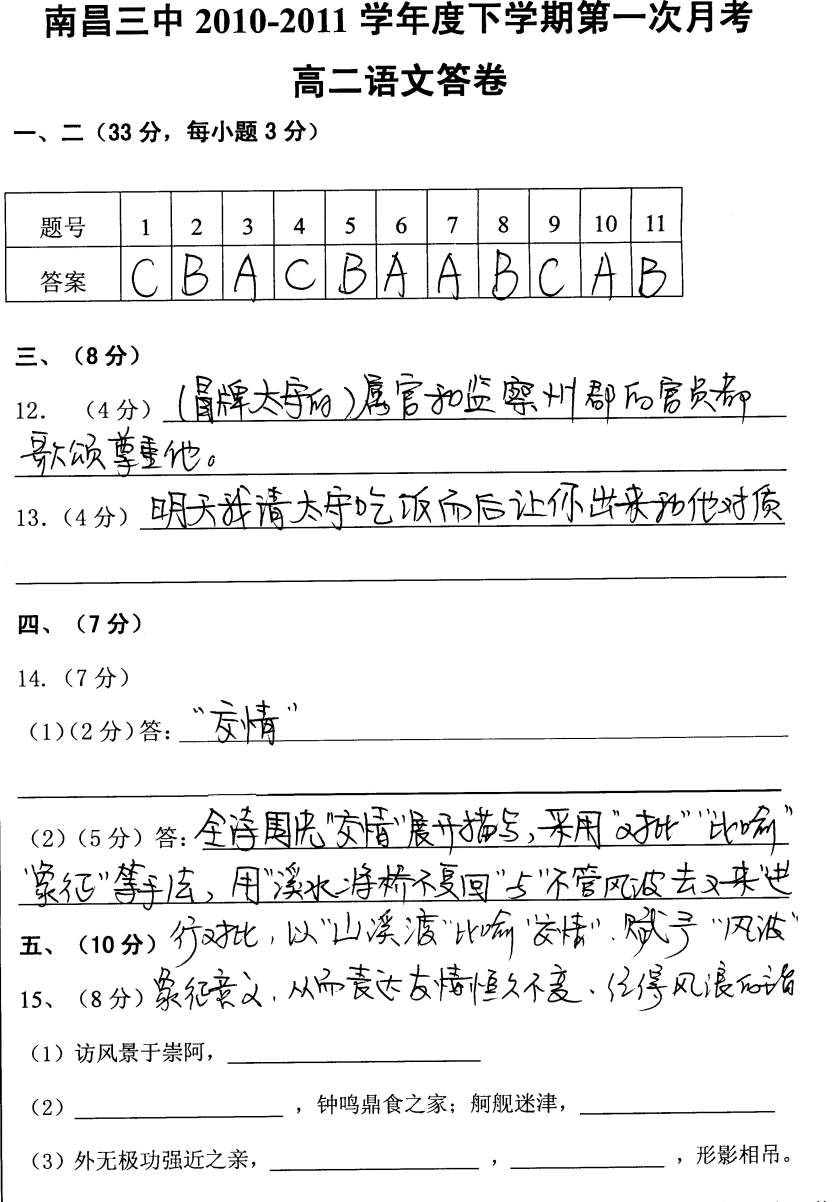 南昌三中 2010-2011 学年度下学期第一次月考
高二语文答卷
一、二（33 分，每小题 3 分）
题号 1 2 3 4 5 6 7 8 9 10 11
答案 C B A C B A A B C A B
三、（8 分）
12. （4 分）（冒牌太守的）属官和监察州郡的官员都
歌颂尊重他。
13.（4 分）明天我请太守吃饭而后让你出来和他对质
四、（7 分）
14.（7 分）
（1）(2 分) 答：“交情”
（2）（5 分）答：全诗围绕“交情”展开描写，采用“对比”“比喻”
“象征”等手法，用“溪水涨桥不复回”与“不管风波去又来”进
五、（10 分）行对比，以“山溪渡”比喻“交情”．赋予“风波”
15、（8 分）象征意义，从而表达友情恒久不变．经得风浪的
（1）访风景于崇阿，
（2） ，钟鸣鼎食之家；舸舰迷津，
（3）外无极功强近之亲， ， ，形影相吊。